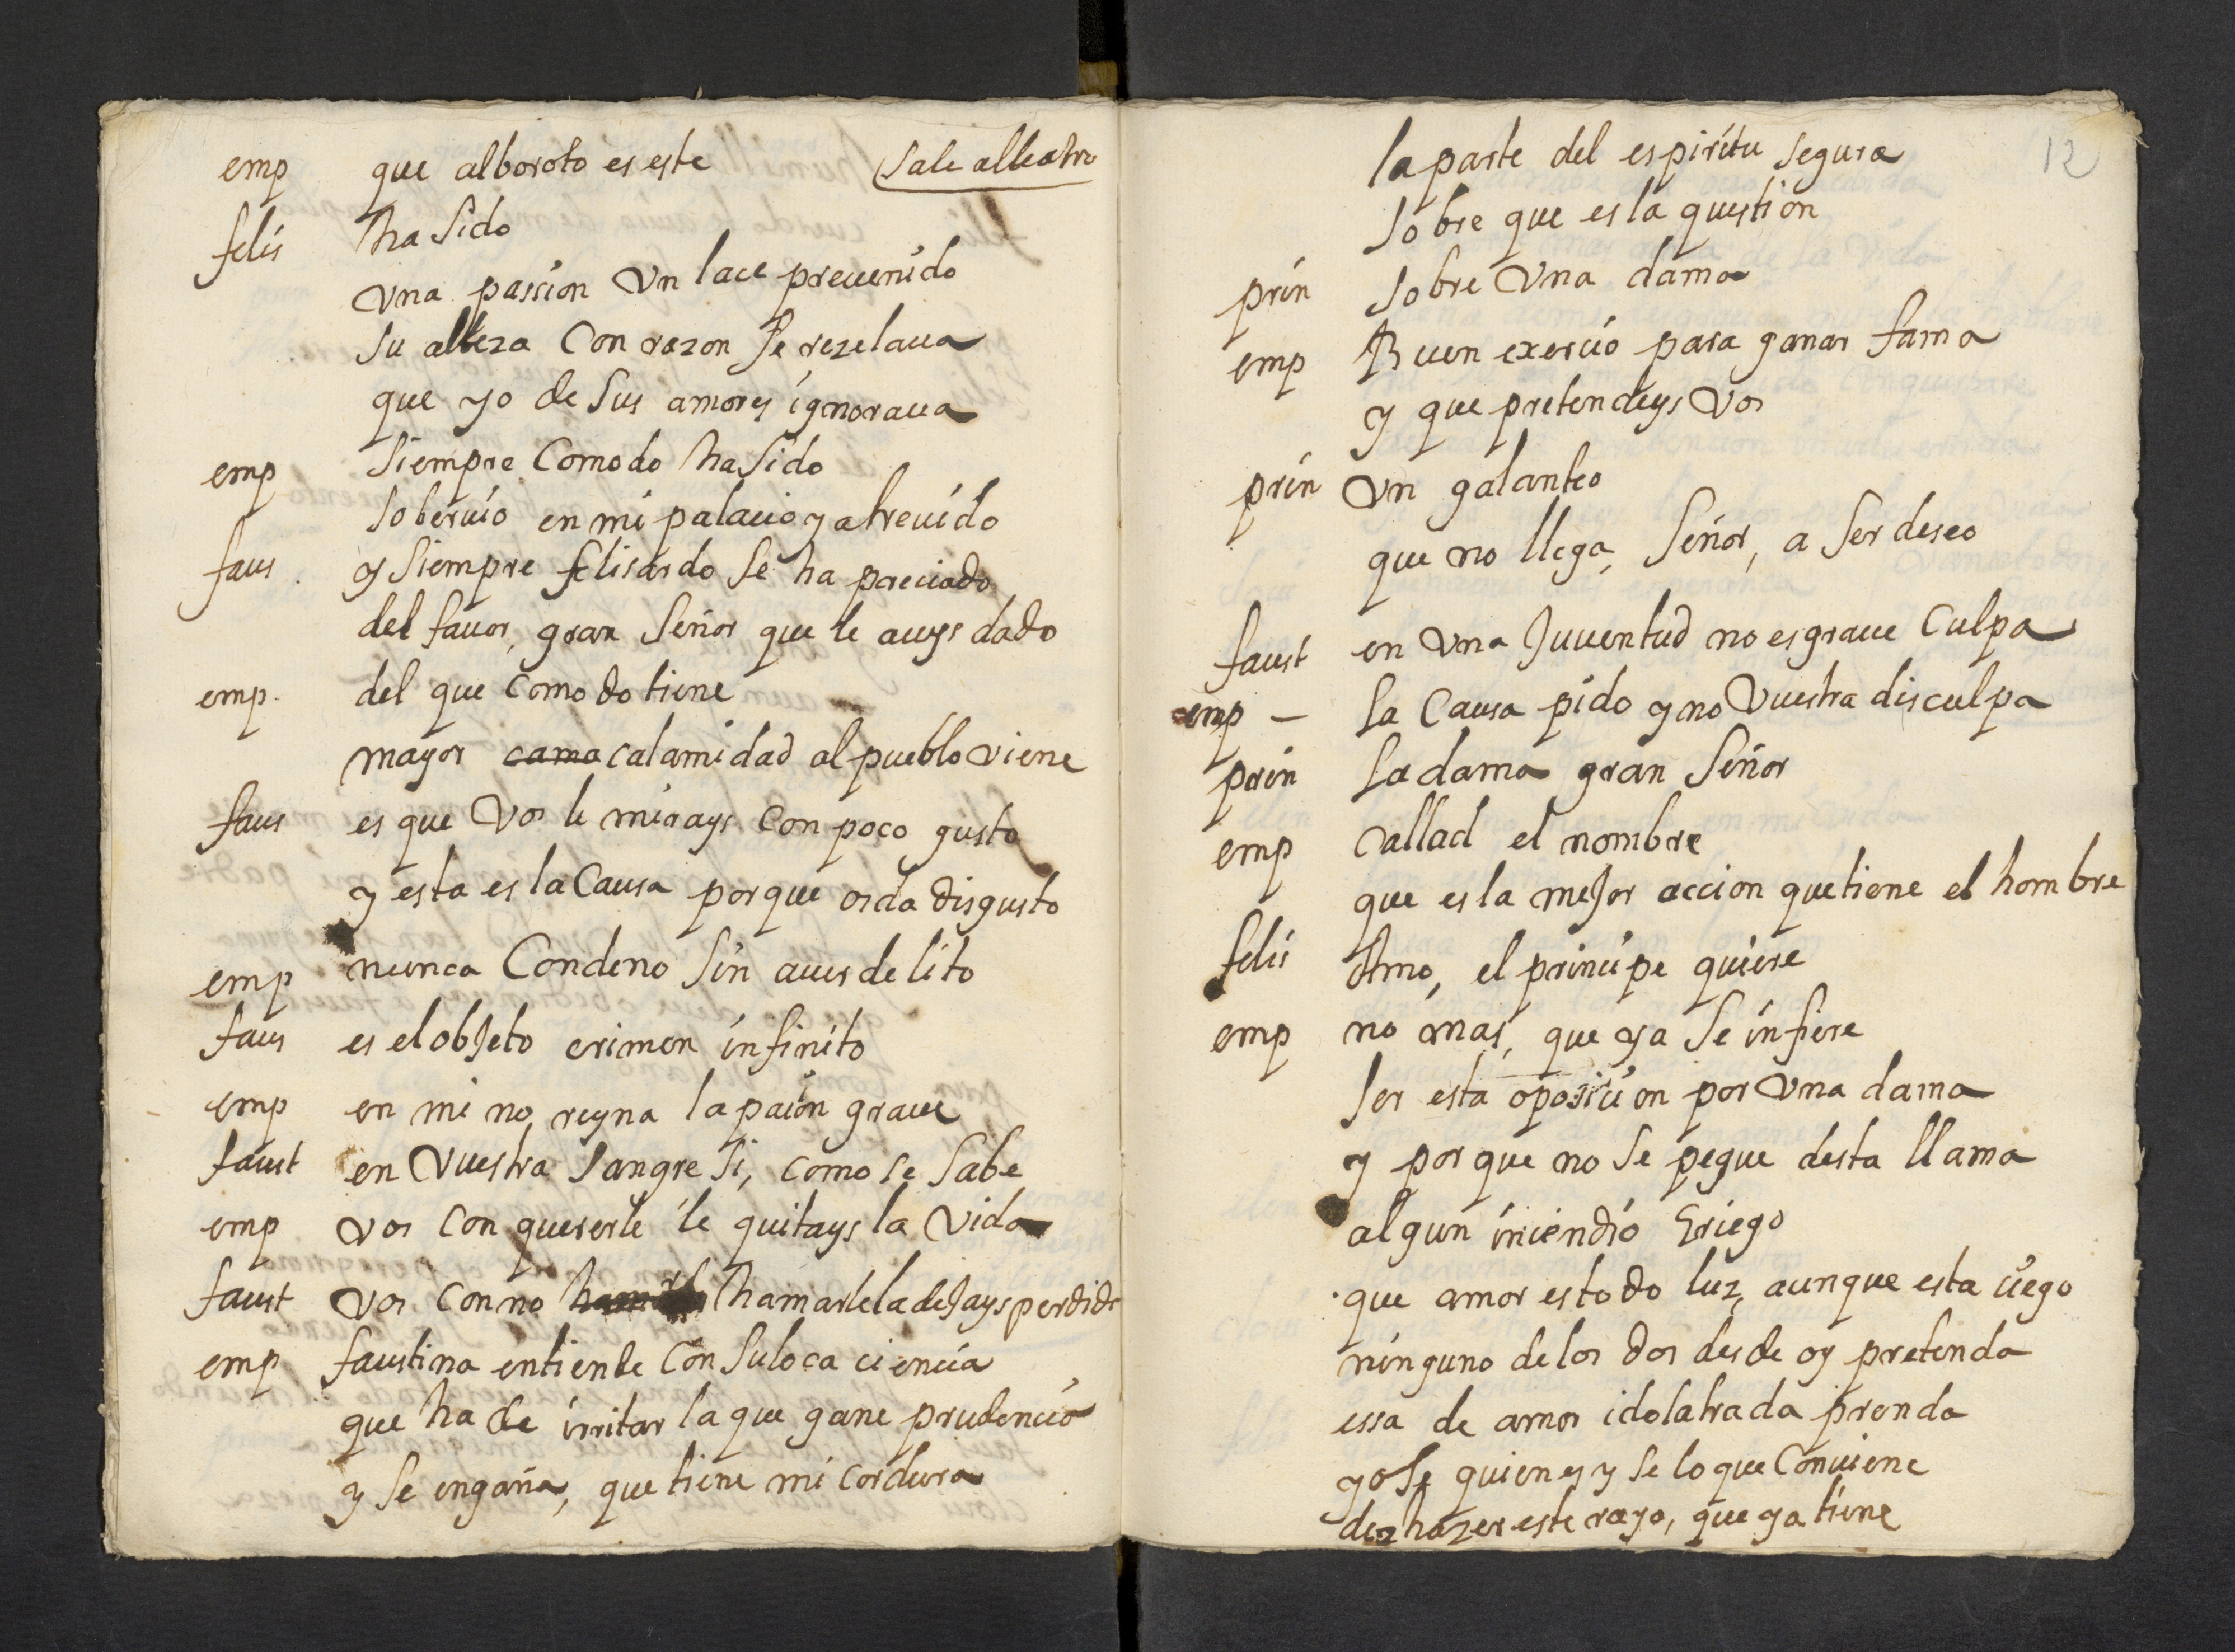 emp que alboroto es este (sale al teatro
felis ha sido
Una passion Un lace preuenido
su alteza Con razon se rezelaua
que yo de sus amores ignoraua
emp siempre Comodo ha sido
soberuio en mi palacio y atreuido
faus y siempre felisardo se ha preciado
del fauor, gran señor que le aueys dado
emp. del que Comodo tiene
mayor cama calamidad al pueblo viene
faus es que Vos le mirays Con poco gusto
y esta es la Causa porque os da disgusto
emp nunca Condeno sin auer delito
faus es el obJeto crimen infinito
emp en mi no reyna la pacion graue
faust en Vuestra sangre si, como se sabe
emp Vos con quererle le quitays la Vida
faust Vos con no hamarle la deJays perdida
emp faustina entiende con su loca ciencia
que ha de irritar la que gane prudencia
y se engaña, que tiene mi cordura
12
la parte del espiritu segura
sobre que es la question
prin sobre Una dama
emp Buen exercio para ganar fama
y que pretendeys Vos
prin Un galanteo
que no llega, señor, a ser deseo
faust en Una Juuentud no es graue Culpa
emp – la Causa pido y no Vuestra disculpa
prin la dama gran señor
emp Callad el nombre
que es la meJor accion que tiene el hombre
felis Amo, el principe quiere
emp no mas, que ya se infiere
ser esta oposicion por Una dama
y por que no se pegue desta llama
algun inicendio Griego
que amor es todo luz, aunque esta ciego
ninguno de los dos desde oy pretenda
essa de amor idolatrada prenda
yo se quien es y se lo que Conuiene
deshazer este rayo, que ya tiene